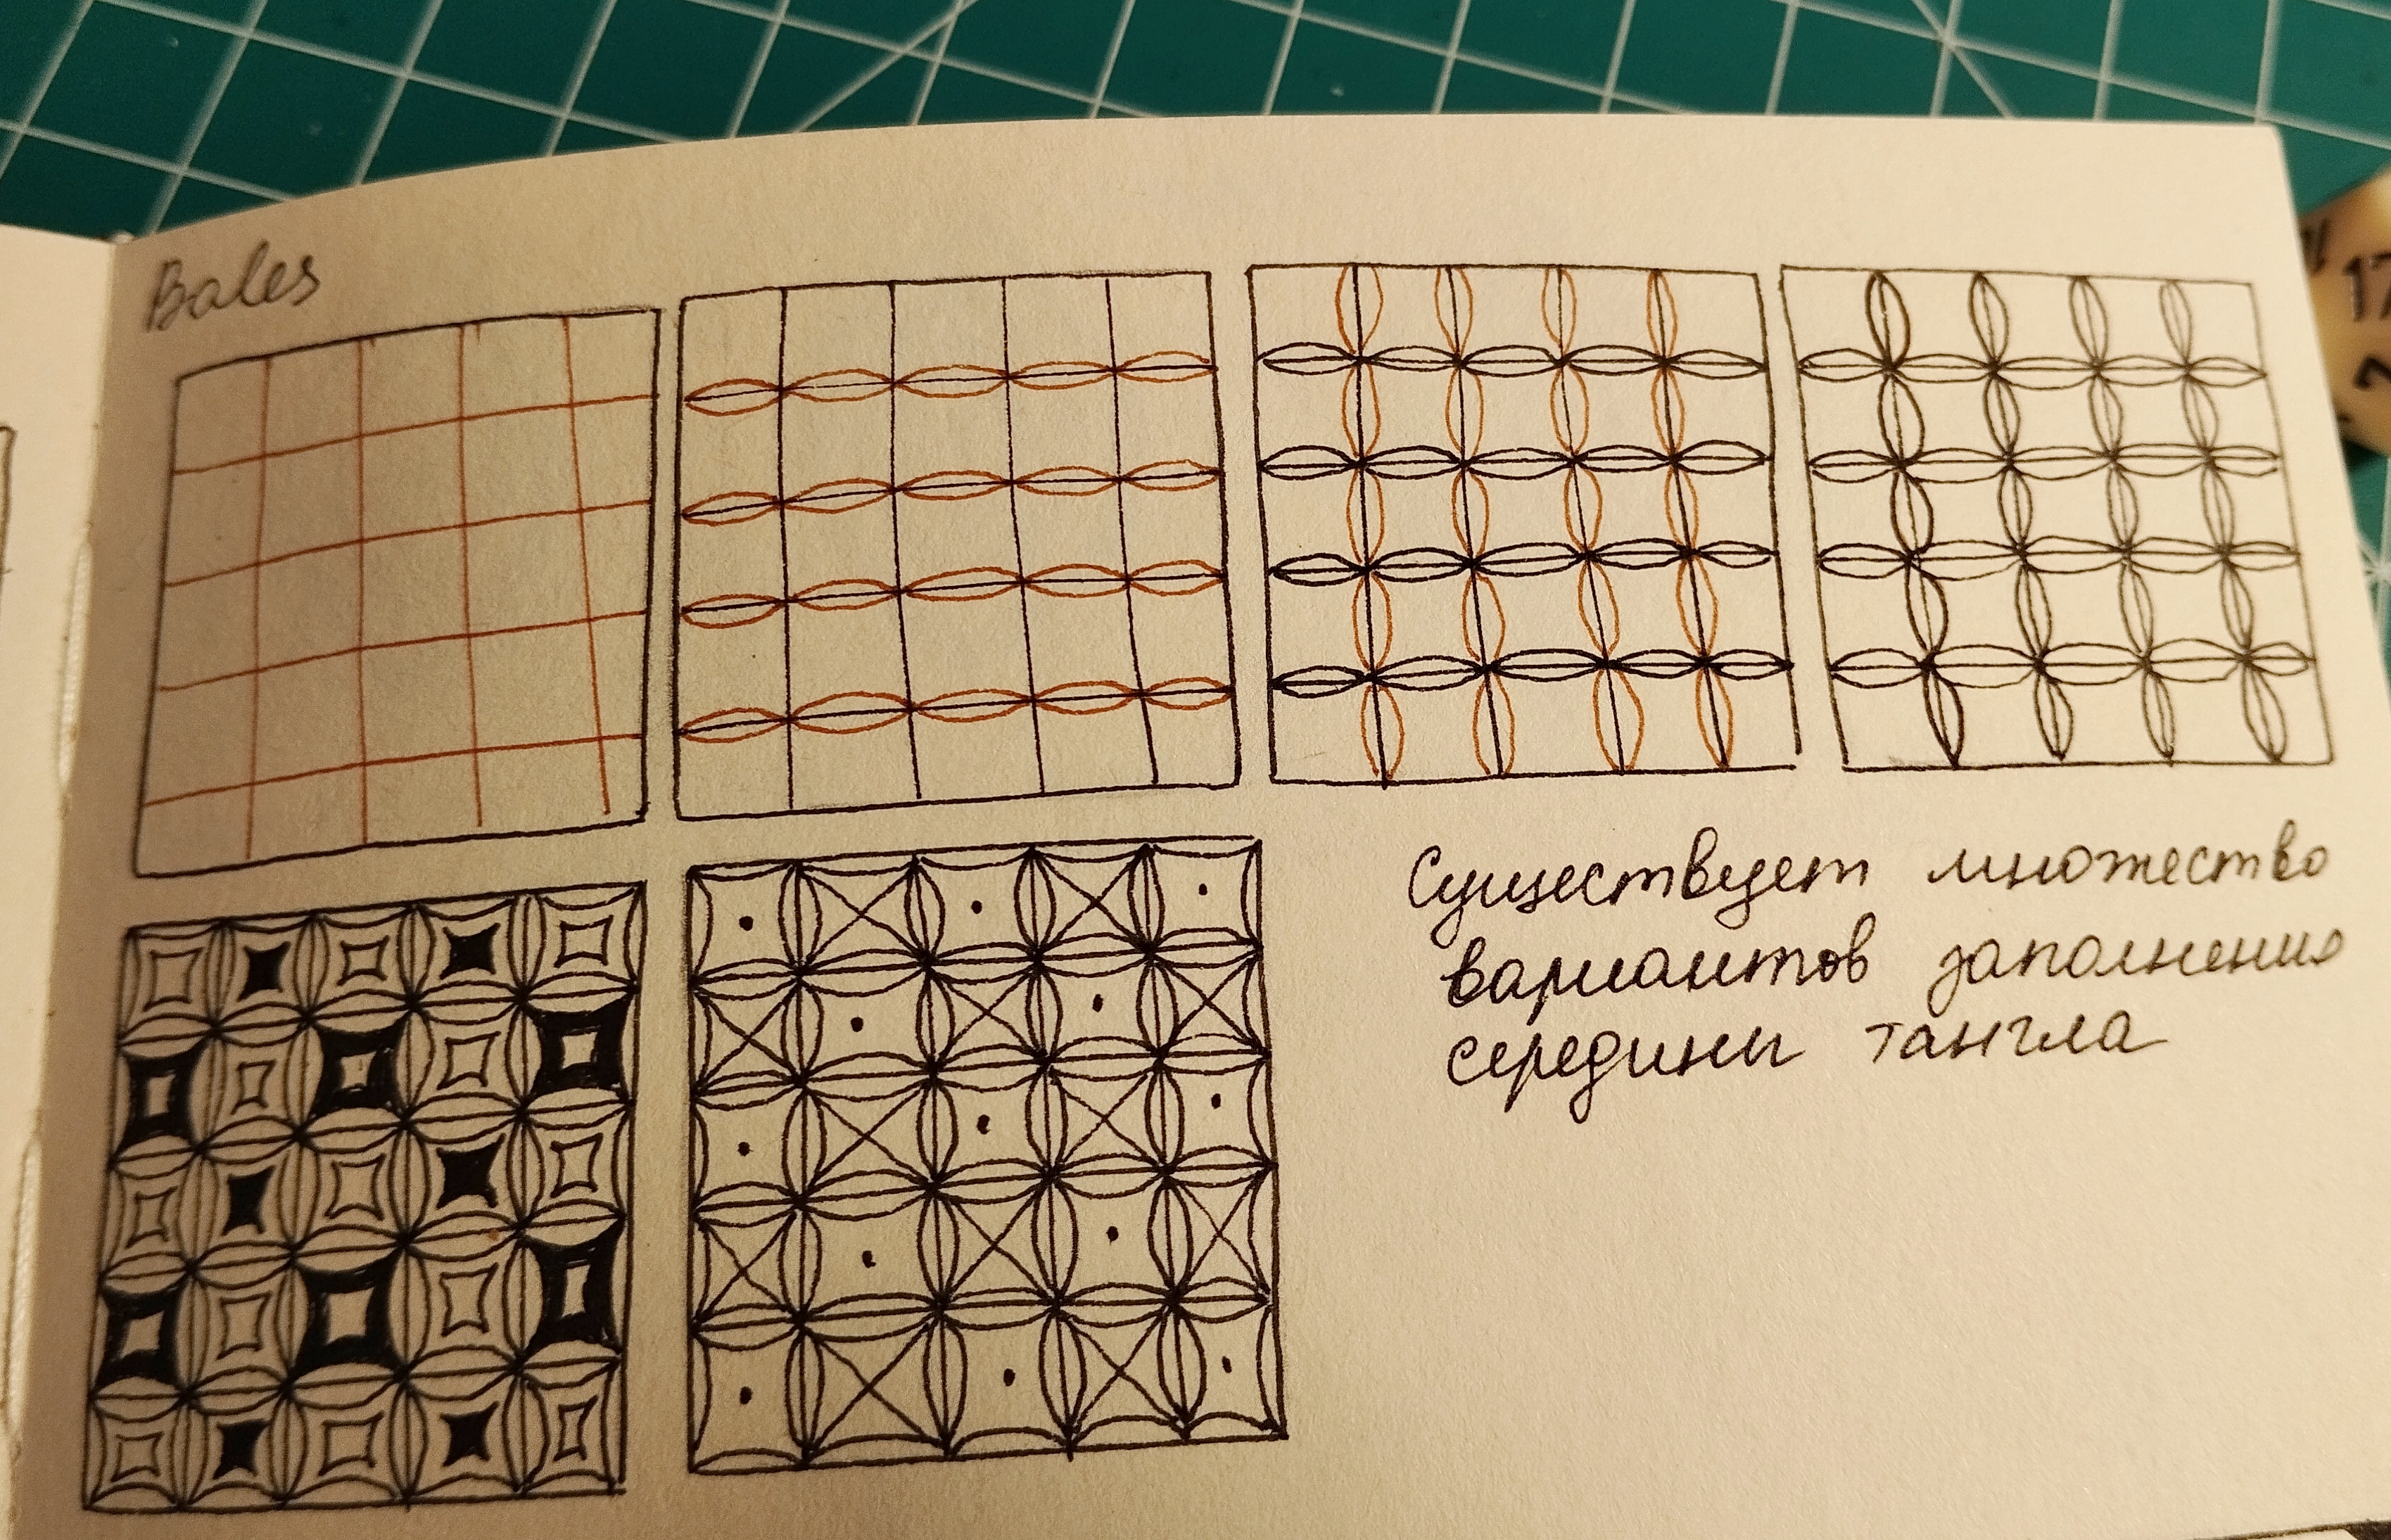 Bales
Существует множество
вариантов заполнения
середины тангла
17